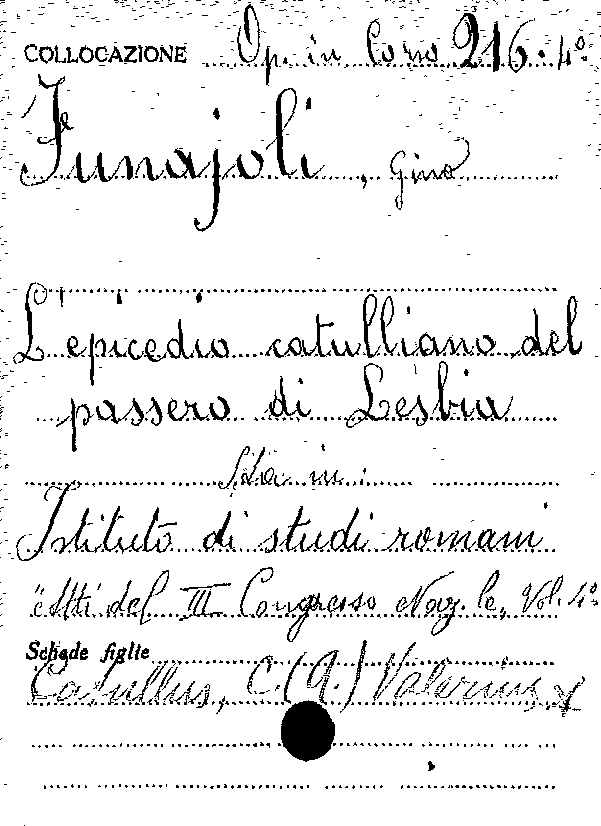 COLLOCAZIONE Op. in Corso 216. 4º
Funajoli, Gino
L'epicedio catulliano del
passero di Lesbia
Sta in:
Istituto di studi romani
"Atti del III Congresso Naz.le, Vol. 4º
Schede figlie
Catullus, C. (Q.) Valerius x